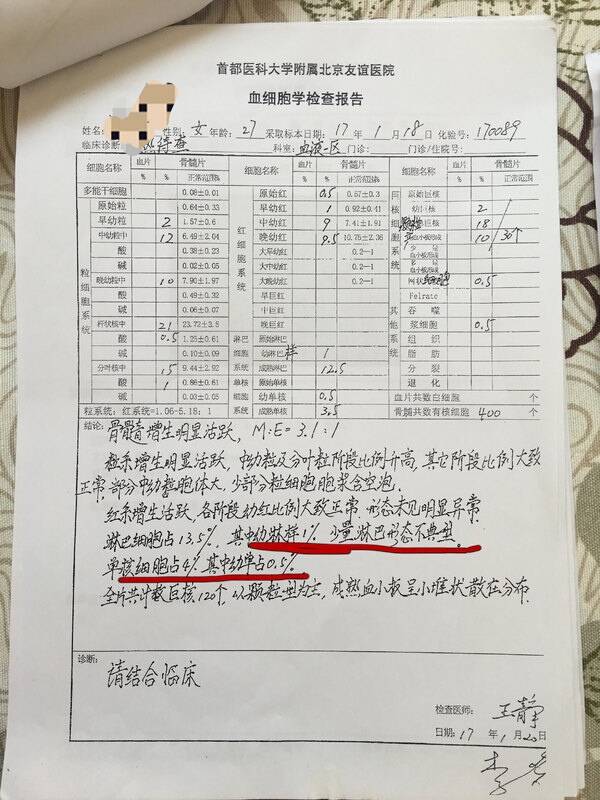 首都医科大学附属北京友谊医院
血细胞学检查报告
姓名: 性别: 女 年龄: 27 采取标本日期: 17 年 1 月 18 日 化验号: 170089
临床诊断: 热待查 科室: 血液一区 门诊: 门诊/住院号:
细胞名称 血片 % 骨髓片 % 正常范围% 细胞名称 血片 % 骨髓片 % 正常范围% 细胞名称 血片 % 骨髓片 % 正常范围
多能干细胞 0.08±0.01 原始红 0.5 0.57±0.3 原始巨核
原始粒 0.64±0.33 早幼红 1 0.92±0.41 幼巨核 2
早幼粒 2 1.57±0.6 中幼红 9 7.41±1.91 巨核 18
中幼粒中 12 6.49±2.04 晚幼红 9.5 10.75±2.36 血小板形成 10 /30个
酸 0.38±0.23 大早幼红 0.2—1
碱 0.02±0.05 大中幼红 0.2—1
晚幼粒中 10 7.90±1.97 大晚幼红 0.2—1 网状细胞 0.5
酸 0.49±0.32 早巨红 Felrate
碱 0.06±0.07 中巨红 吞噬
杆状核中 21 23.72±3.5 晚巨红 浆细胞 0.5
酸 0.5 1.25±0.61 淋巴 原始淋巴 组织
碱 0.10±0.09 细胞 幼淋巴样 1 脂肪
分叶核中 15 9.44±2.92 系统 成熟淋巴 12.5 分裂
酸 1 0.86±0.61 单核 原始单核 退化
碱 0.03±0.05 细胞 幼单核 0.5 血片共数白细胞 个
粒系统: 红系统=1.06-5.18: 1 系统 成熟单核 3.5 骨髓共数有核细胞 400 个
粒细胞系统
红细胞系统
结论: 骨髓增生明显活跃, M:E=3.1:1
粒系增生明显活跃, 中幼粒及分叶粒阶段比例升高, 其它阶段比例大致
正常. 部分中幼粒胞体大, 少部分粒细胞胞浆含空泡.
红系增生活跃, 各阶段幼红比例大致正常. 形态未见明显异常
淋巴细胞占13.5%, 其中幼淋样1% 少量淋巴形态不典型.
单核细胞占4% 其中幼单占0.5%
全片共计数巨核120个, 以颗粒型为主, 成熟血小板呈小堆状散在分布.
诊断:
请结合临床
检查医师: 王静
日期: 17 年 1 月 20 日